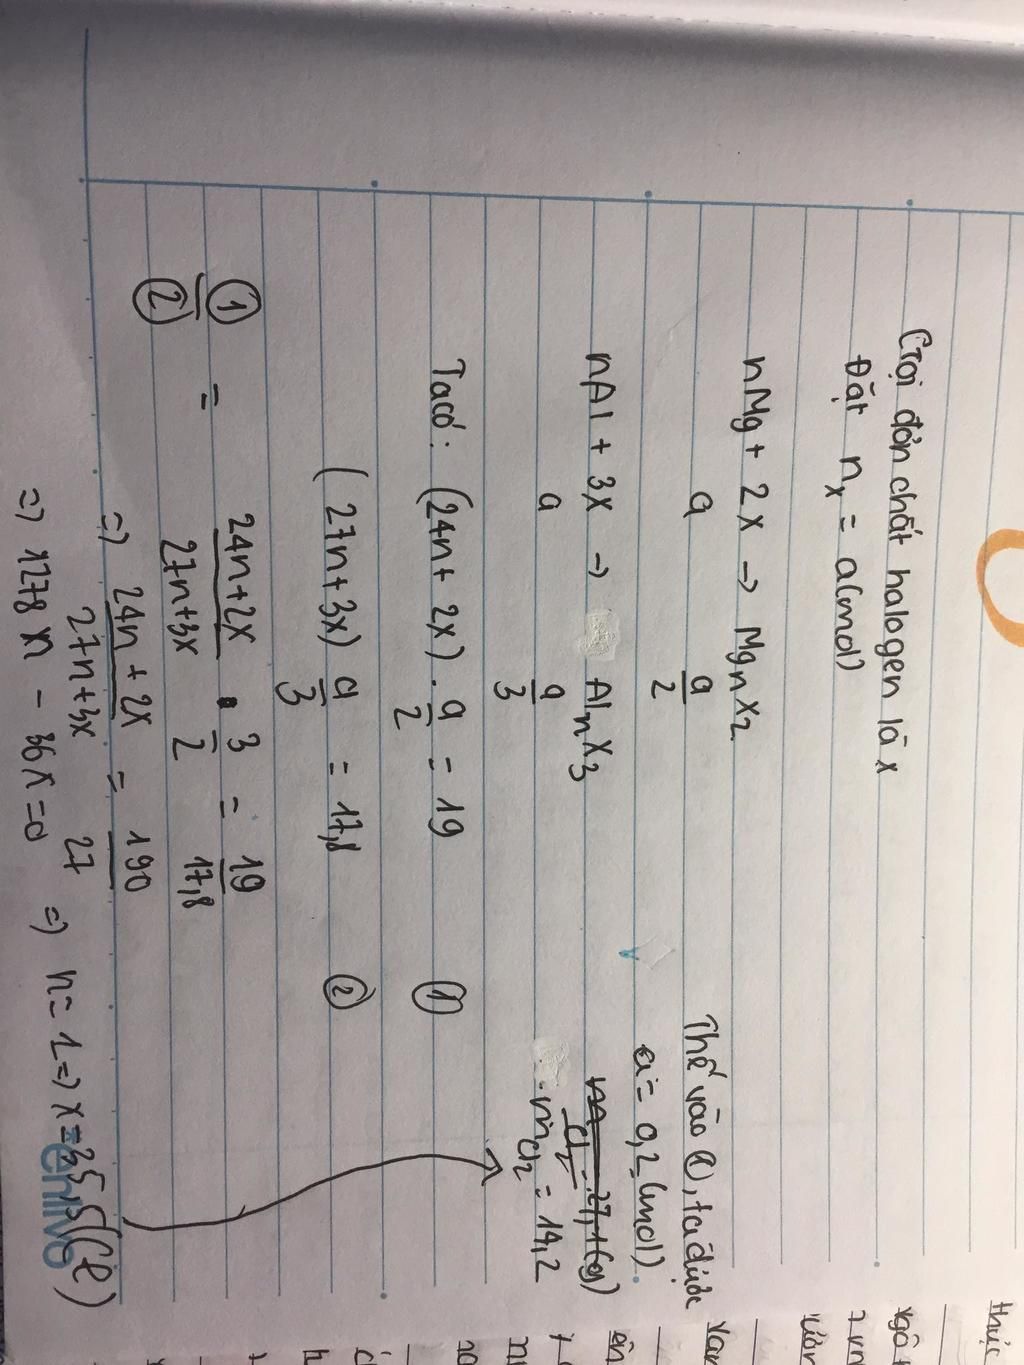 Gọi đơn chất halogen là X
Đặt nX = a(mol)
nMg + 2X → MgnX2
a a/2
nAl + 3X → AlnX3
a a/3
Ta có: (24n + 2X) . a/2 = 19 (1)
(27n + 3X) a/3 = 17,8 (2)
(1)/(2) = (24n+2X)/(27n+3X) . 3/2 = 19/17,8
=> (24n + 2X)/(27n+3X) = 190/27
=> 1278n - 36X = 0 => n = 1 => X = 35,5 (Cl)
Thế vào (1), ta được
a = 0,2 (mol)
mCl2 = 14,2
thức